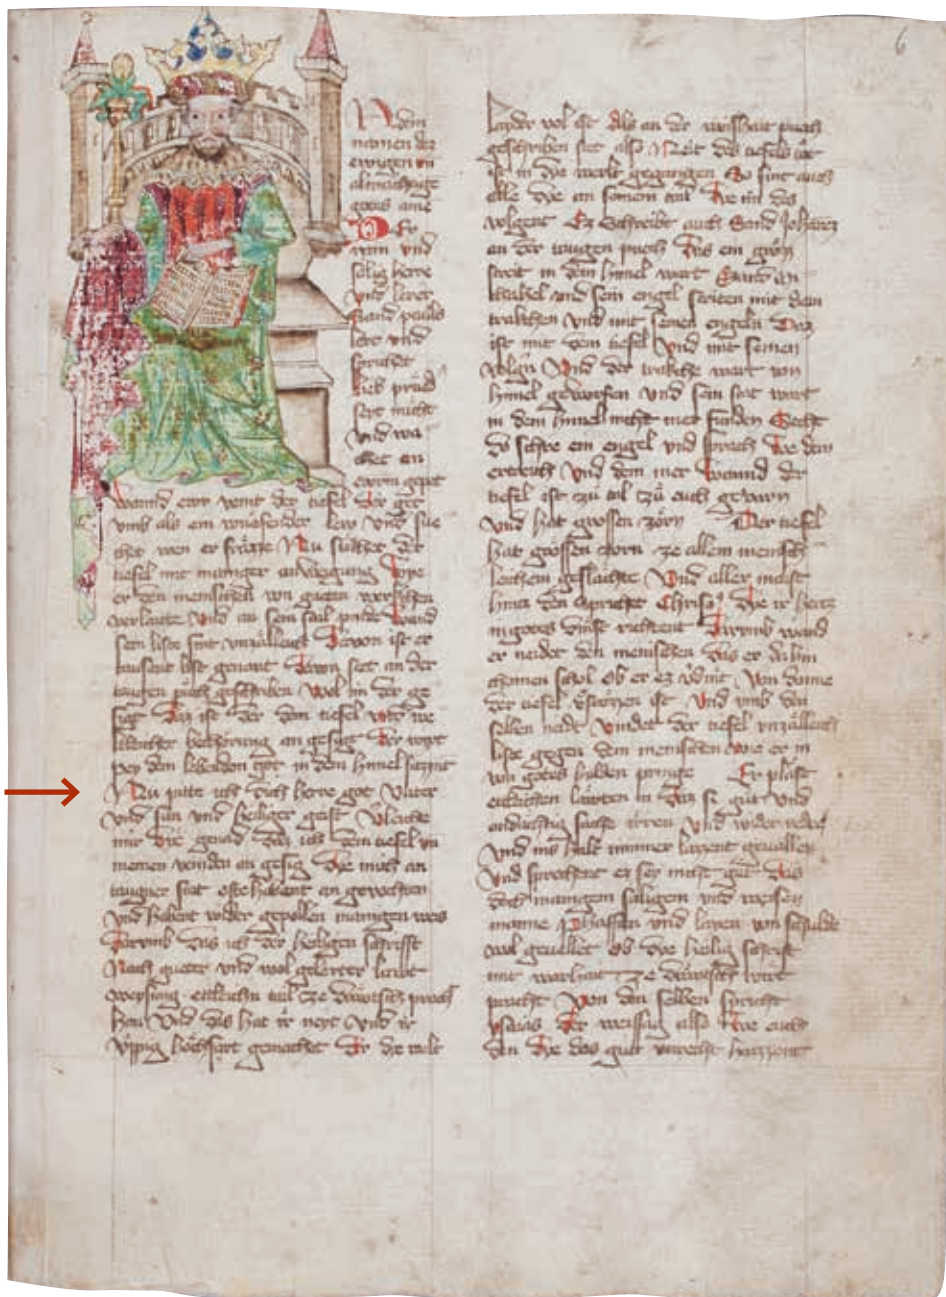 6
In dem
namen der
ewigen vn
almachtige
gotes ame
Der
vnd
sälig herre
vnd lerer
Sand pauls
lert vnd
sprichet
lieb prüd
seyt nücht
vnd wa
chet an
ewrm gepet
wannd ewr veint der tiefel der get
vmb als ein wüefender lew vnd sue
chet wen er fräzze Nu suechet der
tiefel mit maniger anweigung wye
er den menschen von guten
verlaitte vnd an sein sail pinde wand
sein liste sint vnzalleich Davon ist er
tausent list genant Davon stet an der
taugen puch geschriben Wol im der ge
sigt Daz ist der dem tiefel vnd we
an gesigt der wirt
pey dem lebendigen got in dem himel
Nu pitte ich dich herre got vater
vnd sun vnd heiliger geist verleiche
mir die genad daz ich dem tiefel vn
meinen veinden an gesig Die mich an
taugner stat ofte habent an gevochten
vnd habent wider gepollen manigen weis
Darvmb das ich der heiligen schrifft
Nach gueter vnd wol gelerter läwt
weysung ettleichn tail ze däwtsch pracht
han Vnd das hat ir neyt vnd ir
vppig hochfart gemachet Der die welt
layder vol ist Als an der weisshait puch
geschriben stet also Neit des tiefels
ist in dye werlt gegangen So sint auch
alle dye an seinem tail Dye im des
volgent Ez schreibt auch Sand Johannes
an der taugen puch Das ein gröz
streit in dem himel wart Sand
Michel vnd sein engel striten mit dem
trakchen vnd mit seinen engeln Daz
ist mit dem tiefel vnd mit seinen
volgern Vnd der trakche wart von
himel geworfen vnd sein stat wart
in dem himel nicht mer funden Secht
do schre ein engel vnd sprach We dem
ertreich vnd dem mer wannd der
tiefel ist zu tal zu euch gevarn
vnd hat grossen zorn Der tiefel
hat grossen zorn ze allem mensch
leichem geslächte Vnd aller maist
hincz den Spricht Dye ir hercz
in gotes dinst richtent Darvmb wand
er neidet den menschen das er dahin
chomen schol ob er ez vdint von danne
der tiefel verstozzen ist Vnd vmb den
selben neide vindet der tiefel vnzälleich
liste gegen dem menschen wie er in
von gotes hulden pringe Er plast
ettleichen läwten in daz si gut vnd
andächtig sache irren vnd wider reden
vnd ins halt nimmer lazzent gevallen
vnd sprechent ez sey nicht gut Das
doch manigem saligem vnd weisen
manne phaffen vnd layen von schulde
wol gevellet ob dye heilig schrift
mit warhait ze däwtsch wirt
pracht Von den selben spricht
ysaias der weissag also We euch
den Dye das gut vnrecht haizzent